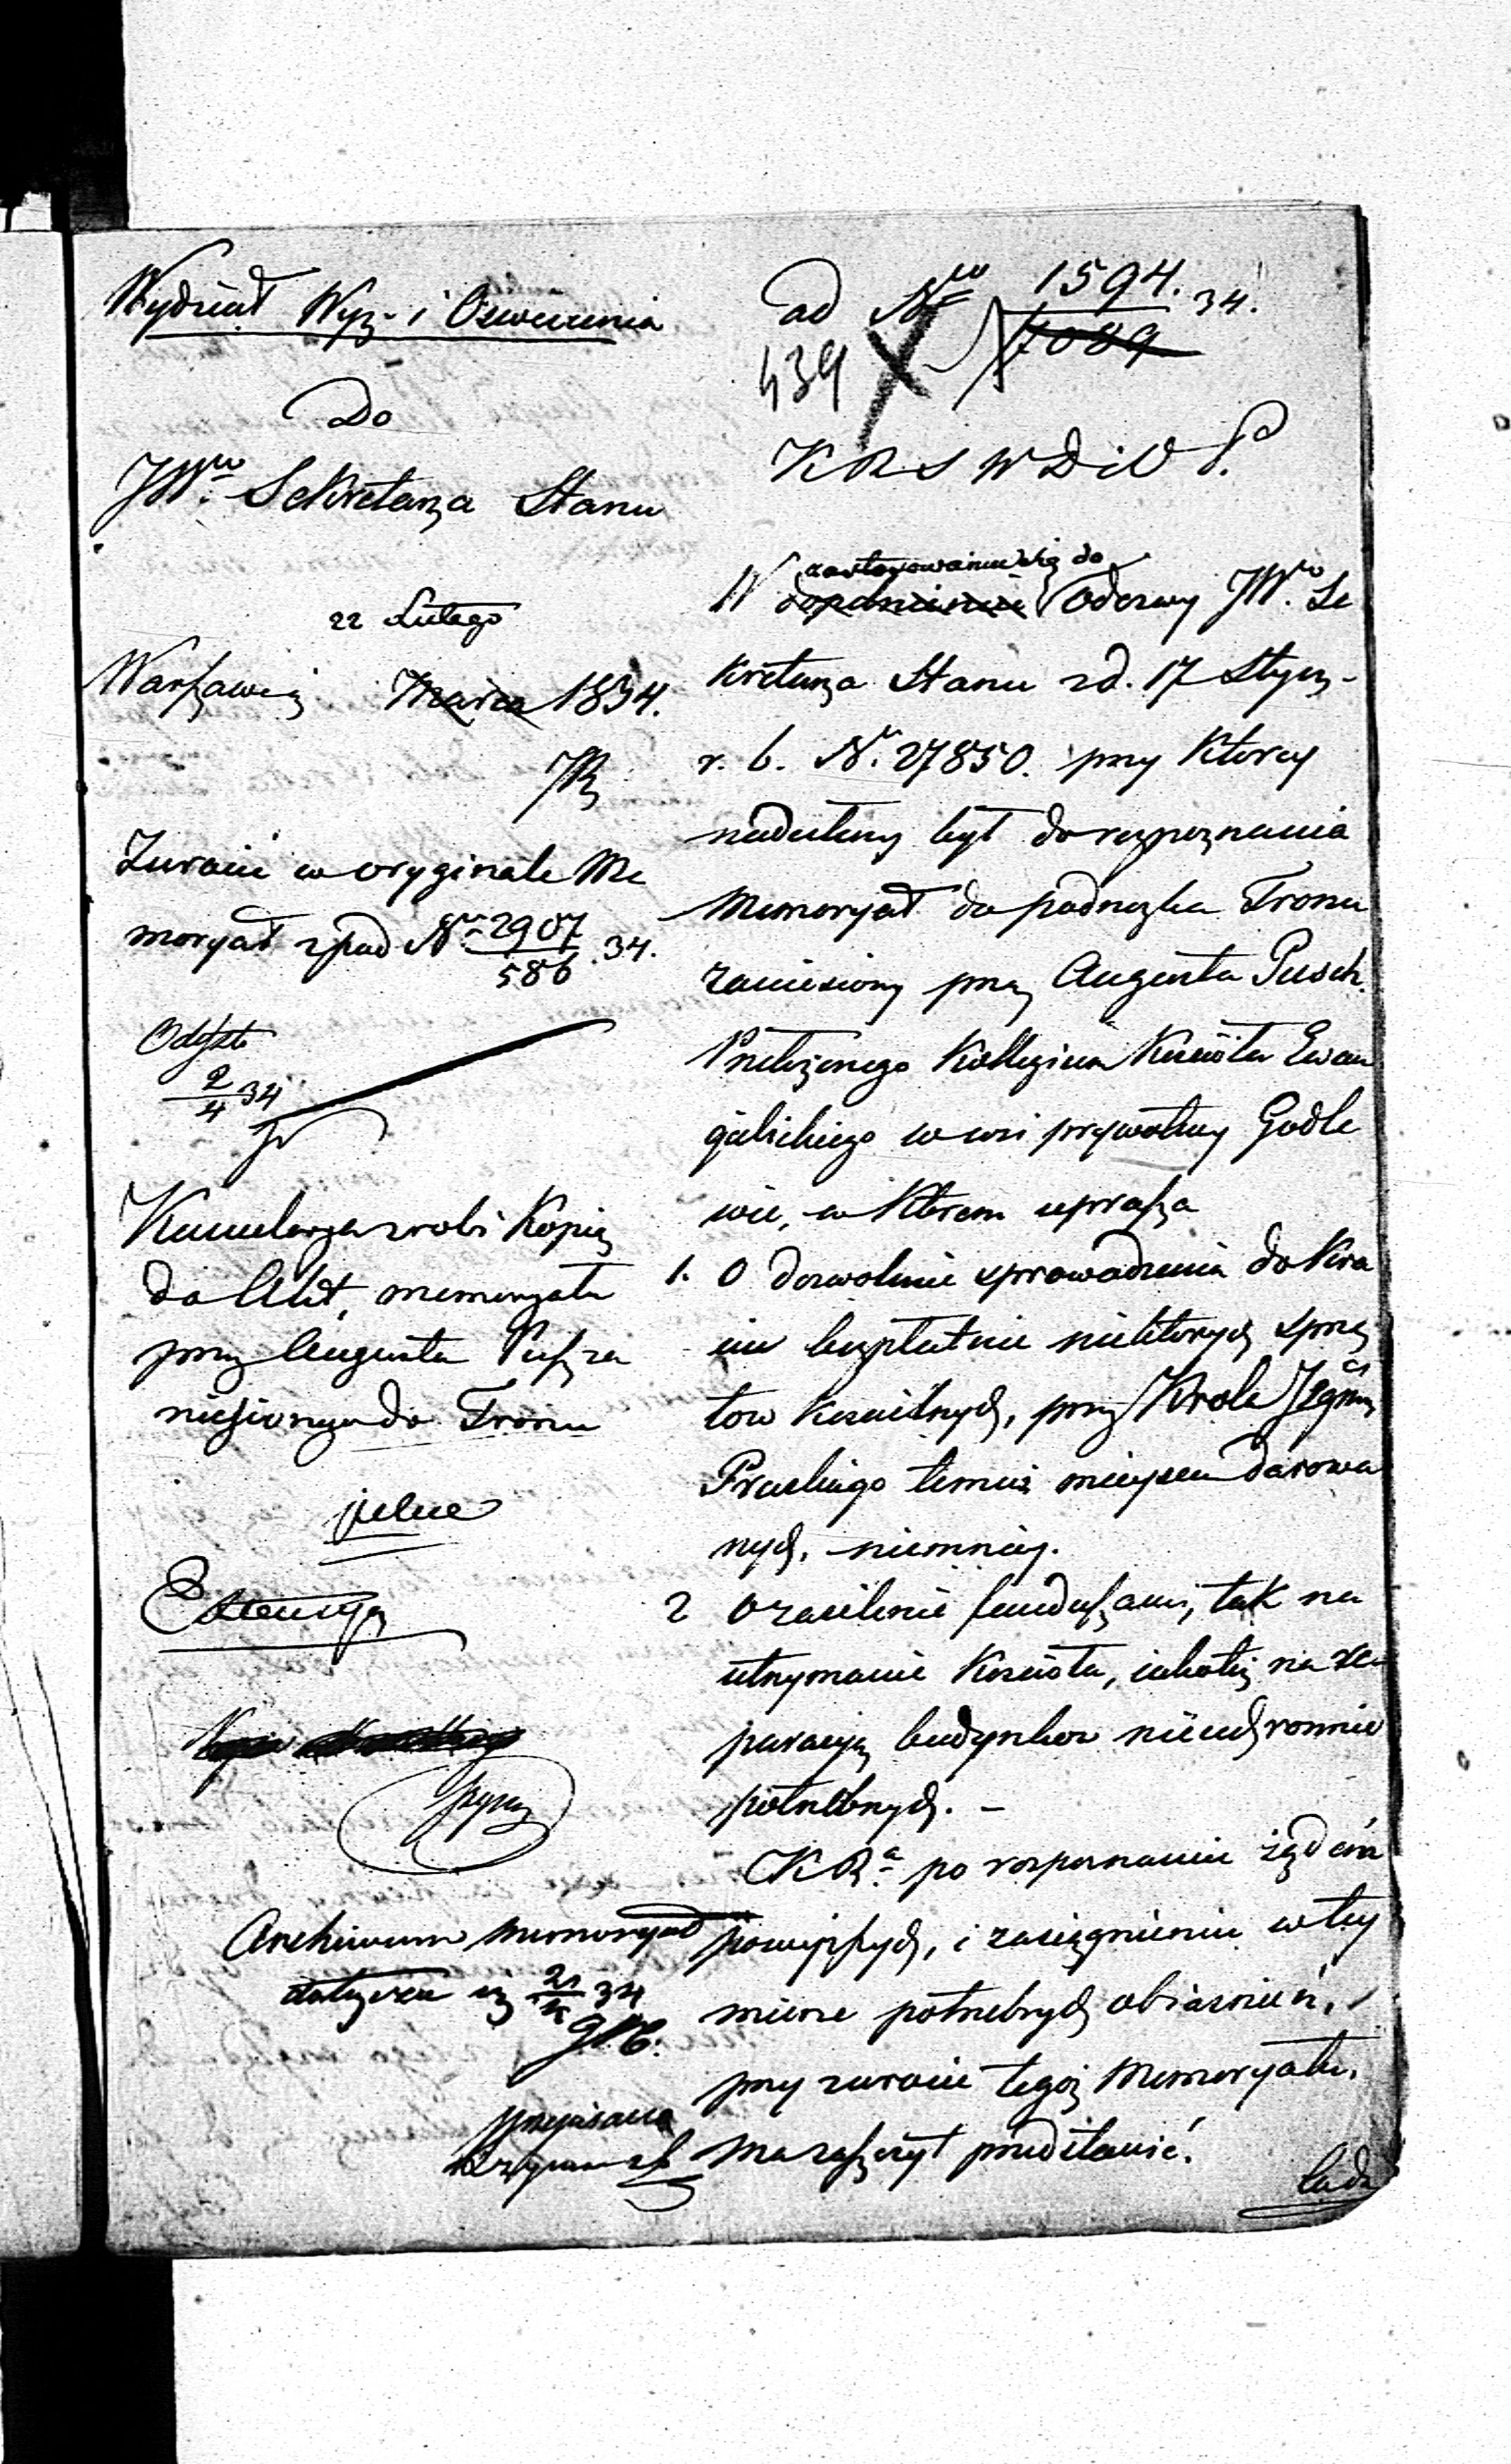 Wydział Wyz. i Oświecenia
Do
JWo Sekretarza Stanu
22 Lutego
w Warszawie Marca 1834.
Zwrócić w oryginale Me
moryał z pod Nr 2907/586 .34.
2/4 34
Kancelarya zrobi Kopią
do Akt, memoryału
przez Augusta Pusz za
niesionego do Tronu
pilne
Expedycya
Archiwum memoryał
2/4 34
przepisano
ad Nro 1594./7089 34.
439
K R S W D i O P.
zastosowaniu się do
W dopełnieniu Odezwy JWo Se
kretarza Stanu z d. 17 Stycz-
r. b. Nr. 27850. przy którey
nadesłany był do rozpoznania
Memoryał do podnozka Tronu
zaniesiony przez Augusta Pusch.
Przełożonego Kollegium Kościoła Ewan
gelickiego w wsi prywatney Godle
wie, w którem uprasza
1. O dozwolenie sprowadzenia do Kra
iu bezpłatnie niektórych sprzę
tów Kościelnych, przez Króla Jego
Pruskiego temuż mieyscu darowa
nych, niemniey.
2 o zasilenie funduszami, tak na
utrzymanie Kościoła, iakoteż na re
paracyą budynków nieuchronnie
potrzebnych. -
K Ra po rozpoznaniu żądań
powyższych, i zasiągnieniu w tey
mierze potrzebnych obiaśnień,
przy zwrocie tegoż Memoryału,
ma zaszczyt przedstawić.